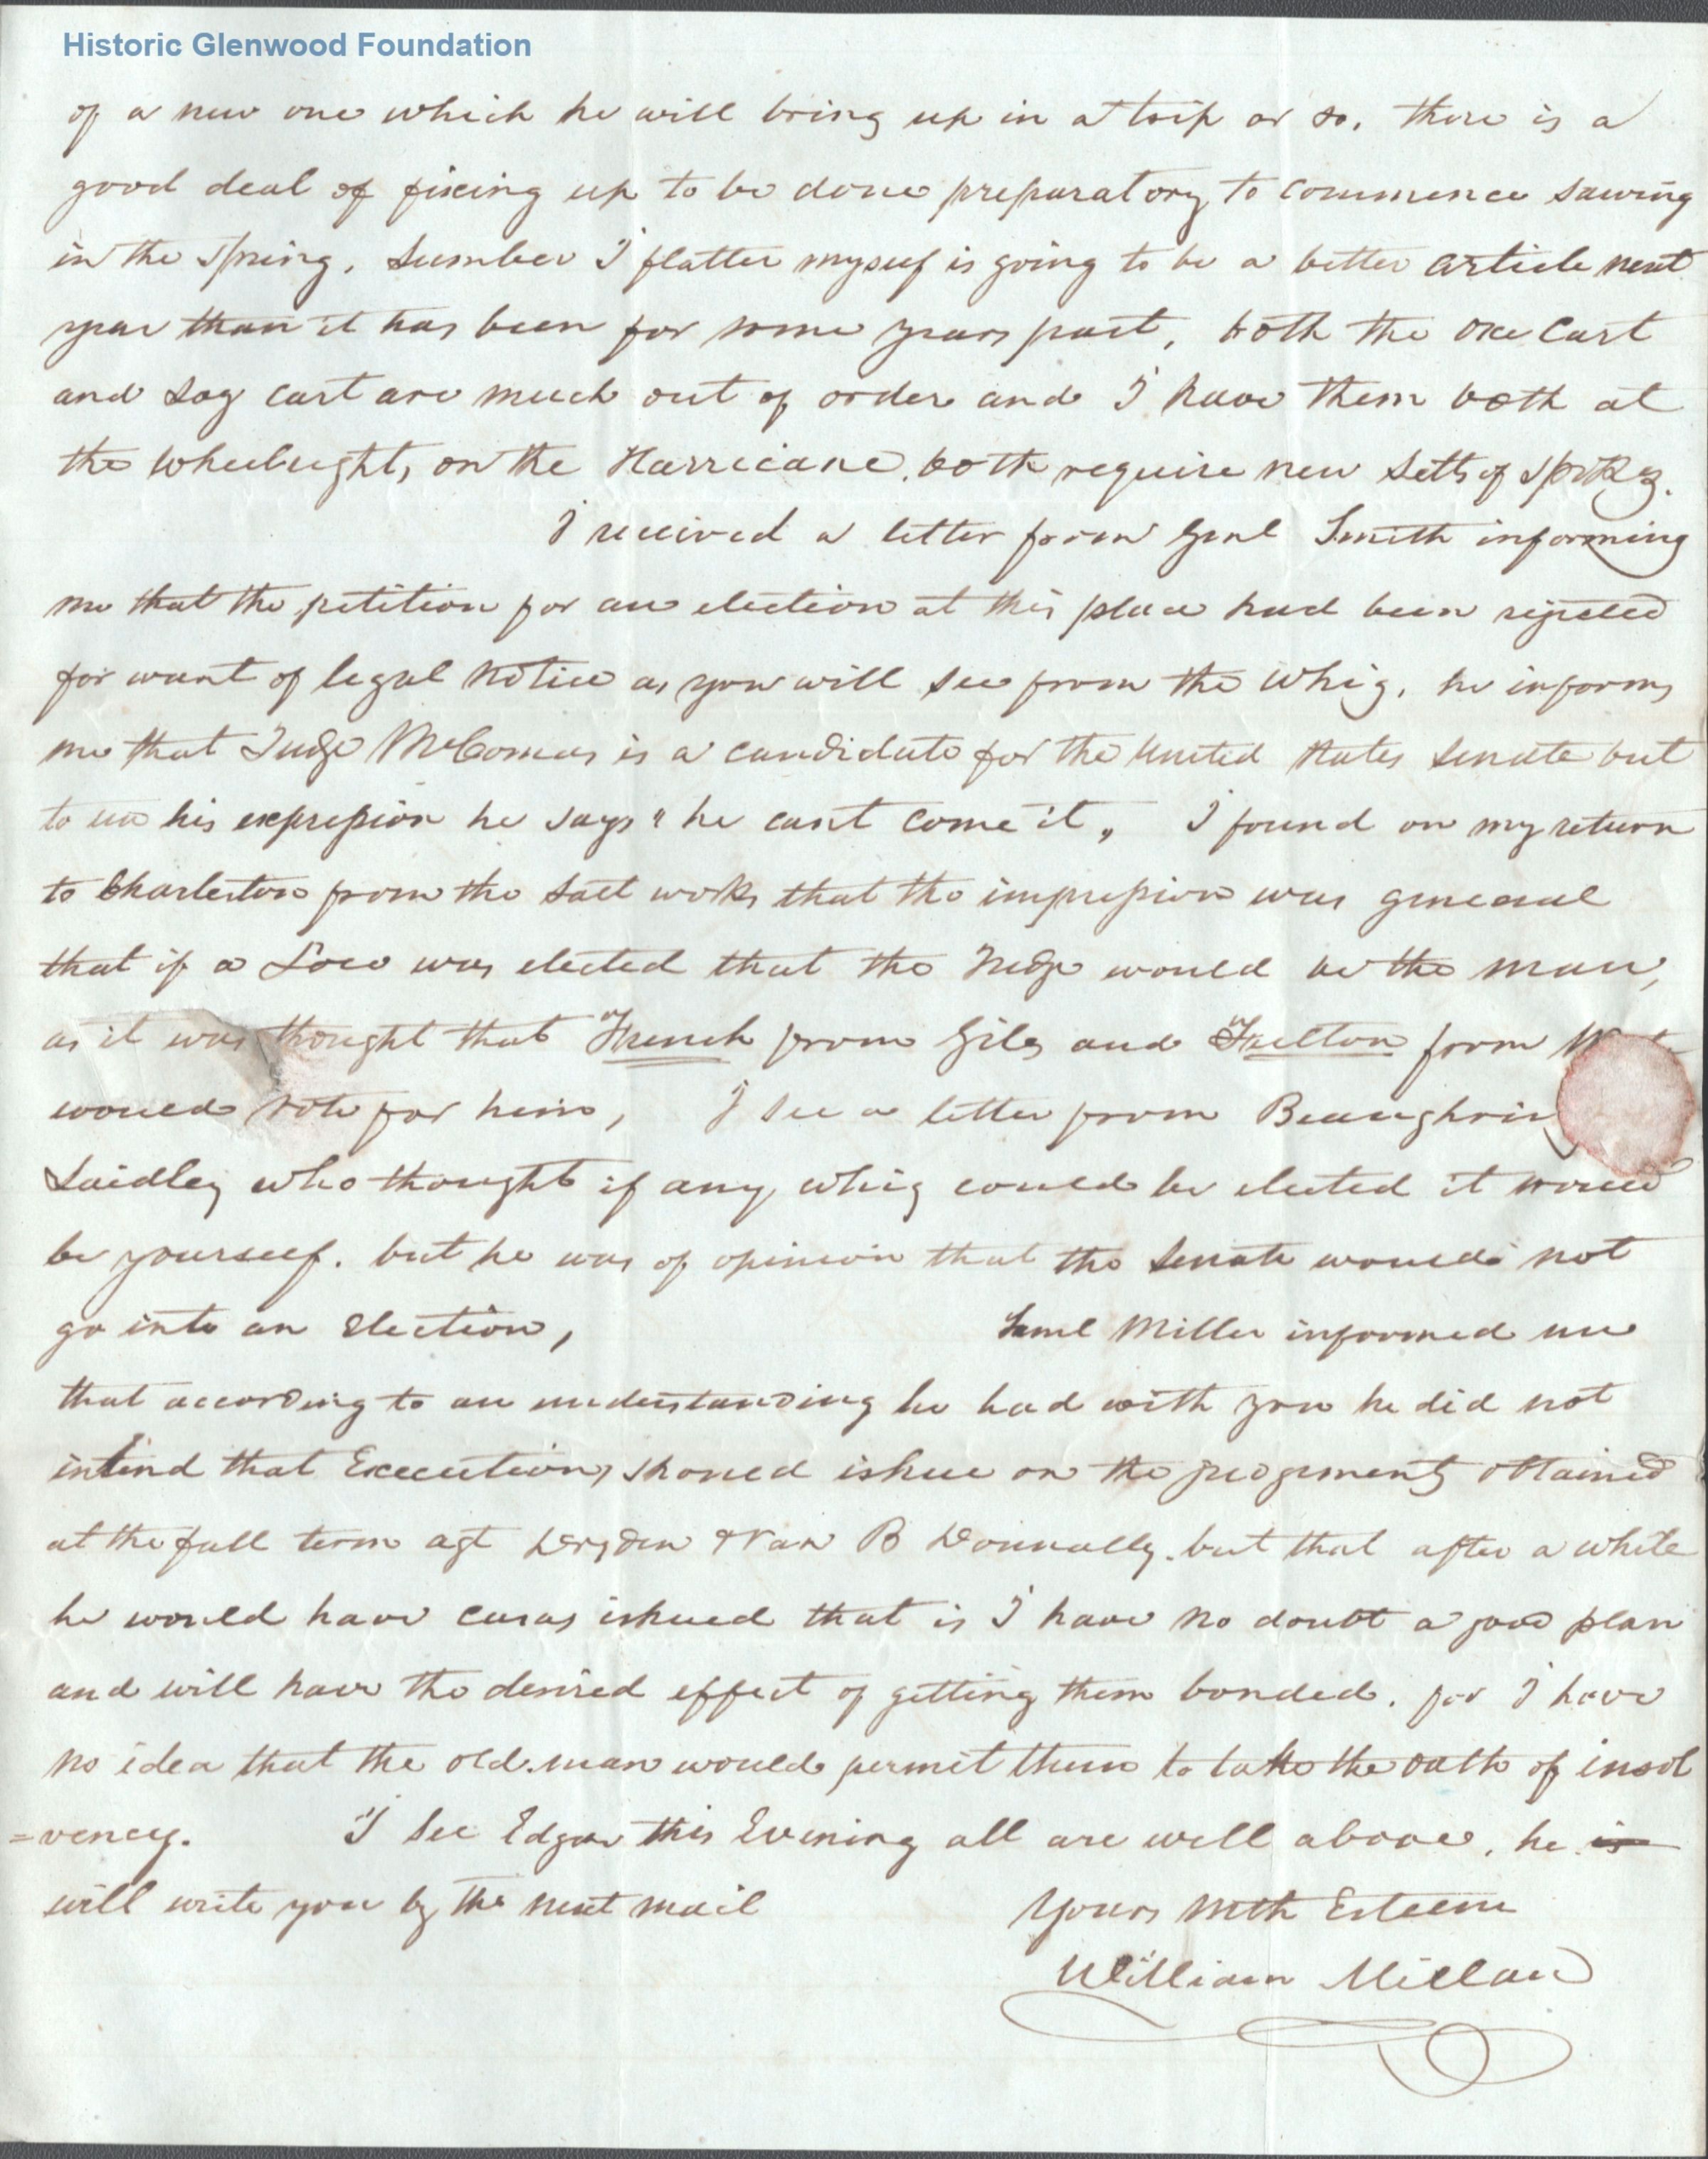 Historic Glenwood Foundation
of a new one which he will bring up in a trip or so, there is a
good deal of fixing up to be done preparatory to commence sawing
in the Spring. Lumber I flatter myself is going to be a better article next
year than it has been for some years past, both the Oxe Cart
and Log Cart are much out of order and I have them both at
the Wheelrights on the Harricane. both require new setts of Spokes.
I received a letter from Genl Smith informing
me that the petition for an election at this place had been rejected
for want of legal notice as you will see from the Whig. he informs
me that Judge McComas is a candidate for the United States Senate but
to use his expression he says "he cant come it" I found on my return
to Charleston from the Salt works that the impression was general
that if a Loco was elected that the Judge would be the man,
as it was thought that French from Giles and Fulton from
would vote for him, I see a letter from
Laidley who thought if any whig could be elected it would
be yourself. but he was of opinion that the Senate would not
go into an Election, Saml Miller informed me
that according to an understanding he had with you he did not
intend that Executions should ishue on the judgments obtained
at the fall term agt Dryden & Van B Donnally. but that after a while
he would have casas ishued that is I have no doubt a good plan
and will have the desired effect of getting them bonded. for I have
no idea that the old man would permit them to take the oath of insol
=vency. I See Edgar this Evening all are well above, he is
will write you by the next mail
Yours With Esteem
William Millan